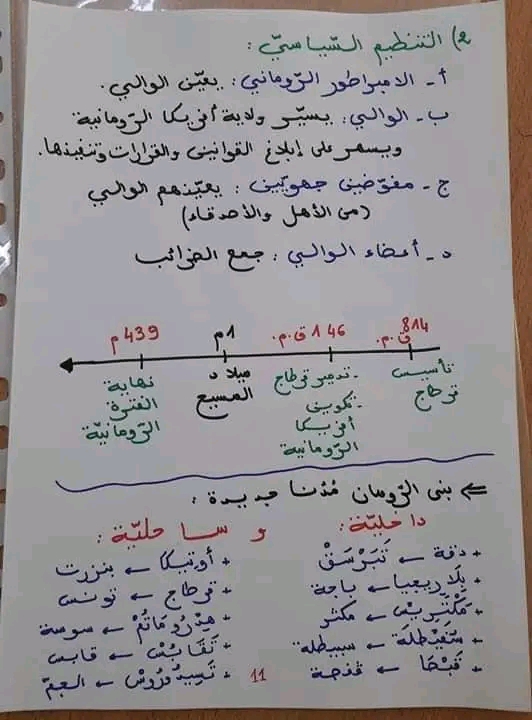 2) التنظيم السّياسيّ :
أ - الامبراطور الرّوماني : يعيّن الوالي .
ب - الوالي : يسيّر ولاية أفريكا الرّومانية
ويسهر على إبلاغ القوانين والقرارات وتنفيذها .
ج - مفوّضين جهويّين : يعيّنهم الوالي
(من الأهل والأصدقاء)
د - أعضاء الوالي : جمع الضرائب
814 ق.م.
146 ق.م.
1م
439 م
تأسيس قرطاج
- تدمير قرطاج
- تكوين أفريكا الرّومانية
ميلاد المسيح
نهاية الفترة الرّومانيّة
⇐ بنى الرّومان مُدُنا جديدة :
داخليّة : و ساحليّة :
+ دقة ← تَبَرْسَقْ
+ بلاريجيا ← باجة
+ مَكْتَرِيسْ ← مكثر
+ سُفَيْطلَة ← سبيطلة
+ قَبْصَا ← قفصة
+ أوتيكا ← بنزرت
+ قرطاج ← تونس
+ هِدْرُومَاتُمْ ← سوسة
+ تَقَابِسْ ← قابس
+ تَيسِدْرُوسْ ← الجمّ
11